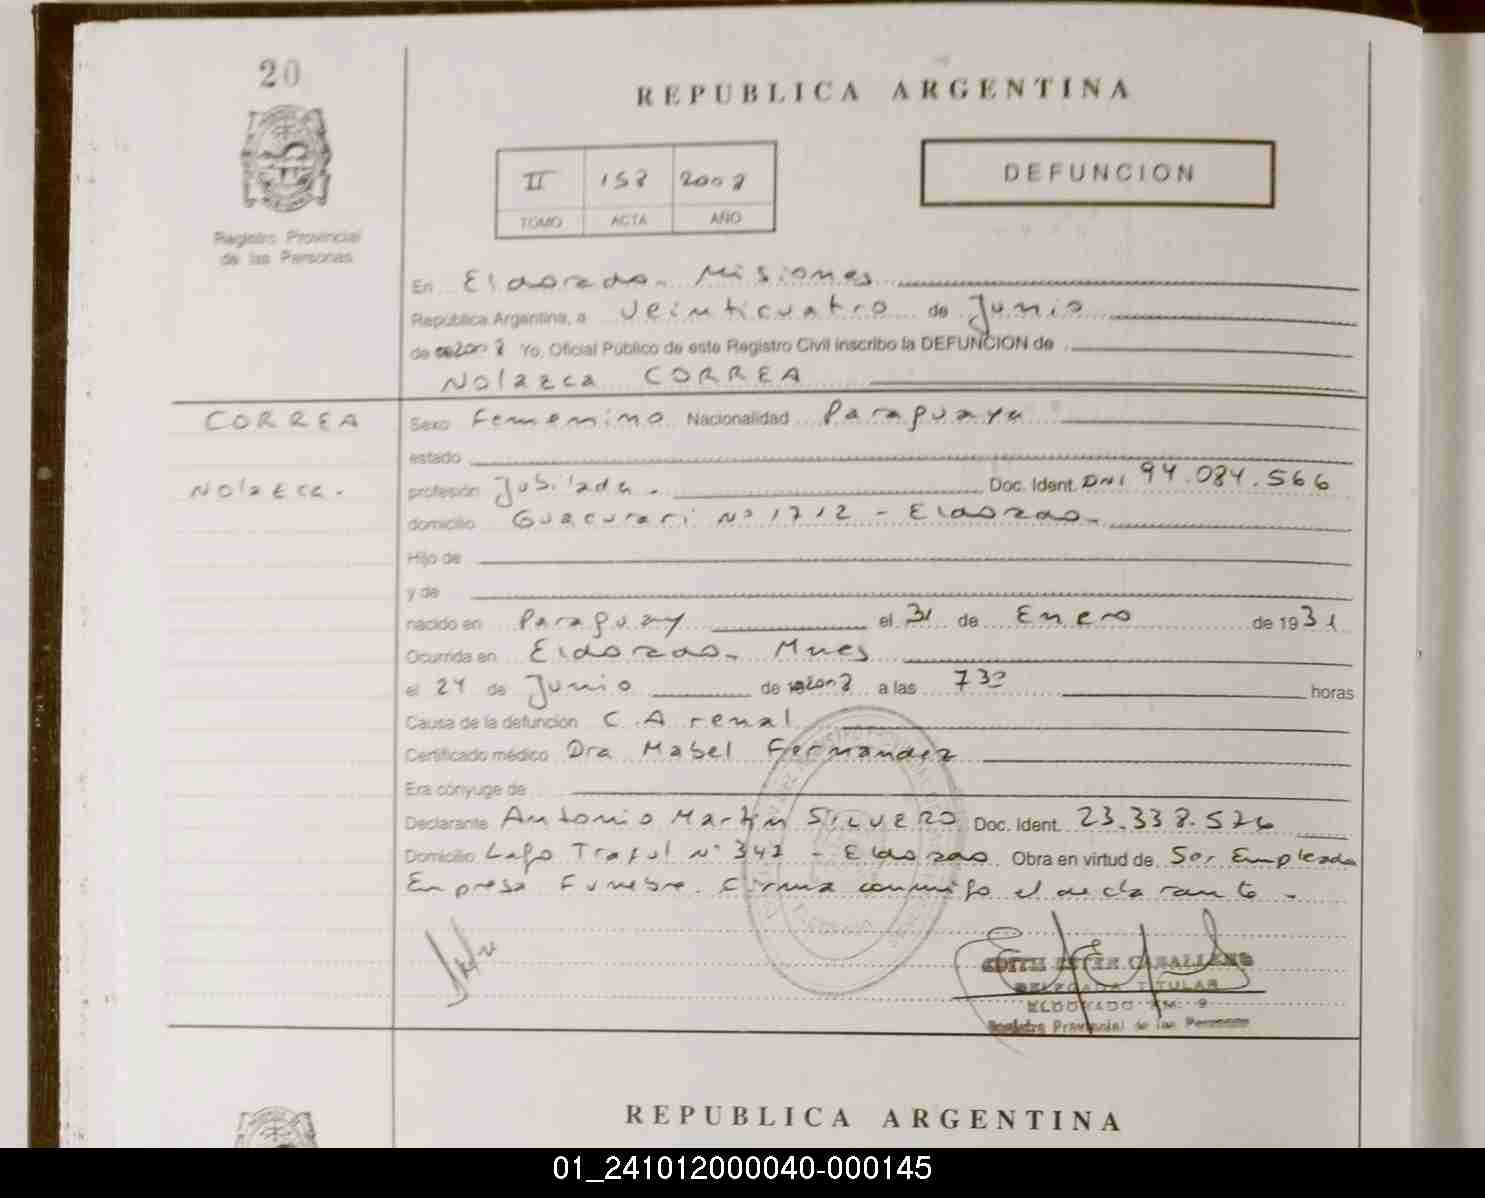 20
REPUBLICA ARGENTINA
Registro Provincial
de las Personas
II 158 2008
TOMO ACTA AÑO
DEFUNCION
En Eldorado. Misiones
República Argentina, a veinticuatro de Junio
de 2008 Yo, Oficial Público de este Registro Civil inscribo la DEFUNCION de
Nolazca CORREA
CORREA
Nolazca.
Sexo Femenino Nacionalidad Paraguaya
estado
profesión Jubilada. Doc. Ident. DNI 94.084.566
domicilio Guacurari Nº 1712 - Eldorado.
Hijo de
y de
nacido en Paraguay el 31 de Enero de 1931
Ocurrida en Eldorado. Mnes
el 24 de Junio de 2008 a las 730 horas
Causa de la defunción C.A renal
Certificado médico Dra Mabel Fernandez
Era cónyuge de
Declarante Antonio Martin SILVERO Doc. Ident. 23.338.526
Domicilio Lago Traful Nº 342 - Eldorado Obra en virtud de Ser Empleado
Empresa Funebre. Firma conmigo el declarante -
EDITH ESTER CABALLERO
DELEGADA TITULAR
ELDORADO KM. 9
Registro Provincial de las Personas
REPUBLICA ARGENTINA
01_241012000040-000145